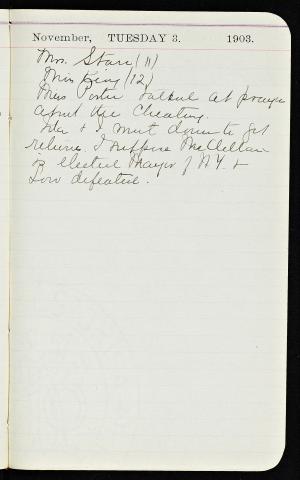 November, TUESDAY 3. 1903.
Mrs. Starr (11)
Miss King (12)
Miss Porter talked at prayers
about the cheating.
& I went down to get
returns. I suppose McClellan
is elected Mayor of N.Y. &
Low defeated.